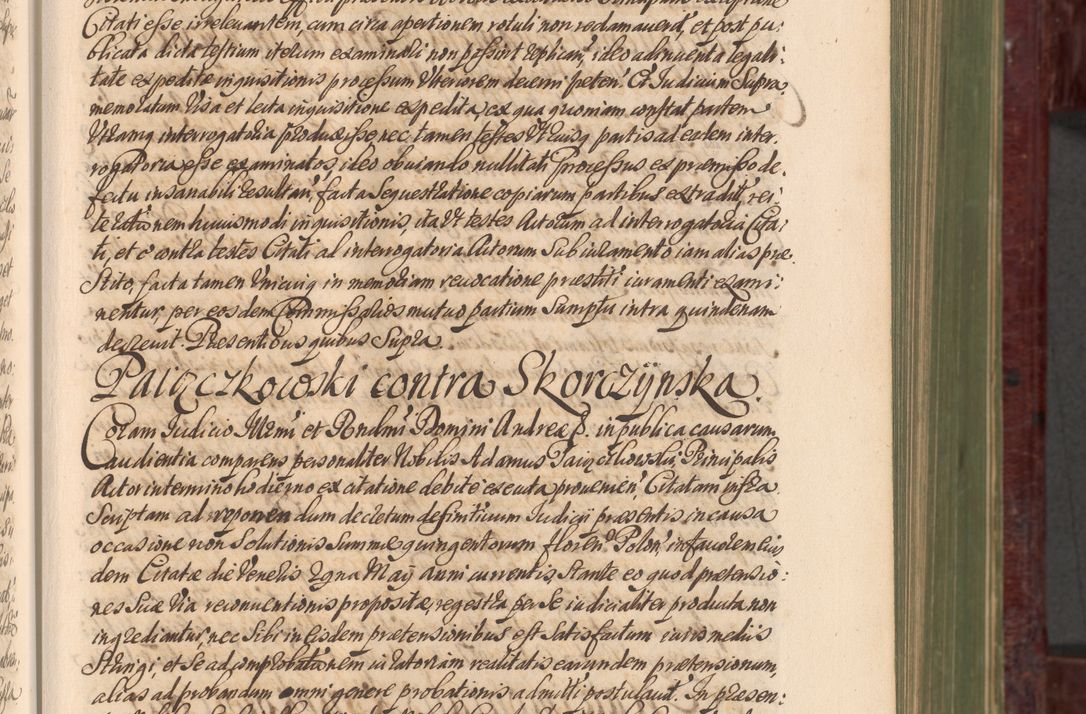 Citati esse irreleuantem, cum circa apertionem rotuli non reclamauerit, et post pu:
blicata dicta testium iterum examinari non possint replicari, ideo adinuenta legali:
tate expeditæ inquisitionis processum vlteriorem decerni peten. Et Iudicium Supra
memoratum Visa et lecta inquisitione expedita, ex qua quoniam constat partem
Vtramq interrogatoria produxisse, nec tamen testes Vtriusq partis ad eadem inter:
rogatoria esse examinatos, ideo obuiando nullitati Processus ex præmisso de:
fectu insanabili resultan, facta sequestratione copiarum partibus extradit, rei:
terationem huiusmodi inquisitionis, ita Vt testes Actorum ad interrogatoria Cita:
ti, et e contra testes Citati al interrogatoria Actorum Sub iuramento iam alias præ:
stito, facta tamen Vnicuiq in memoriam reuocatione præstiti iuramenti exami:
nentur, per eosdem Commissarios mutuo partium Sumptu intra quindenam
decreuit. Præsentibus quibus Supra
Paiączkowski contra Skorczÿnska.
Coram Iudicio Illmi et Rndmi Domini Andreæ S. in publica causarum
audientia comparens personaliter Nobilis Adamus Paiączkowski, Principalis
Actor in termino hodierno ex citatione debite executa prouenien, Citatam infra
Scriptam ad reponendum decretum definitiuum Iudicij præsentis in causa
occasione non Solutionis Summæ quingentorum floren Polon in fauorem eius
dem Citatæ die Veneris 2gna Maij anni currentis stante eo quod prætensio:
nes Suæ Via reconuentionis propositæ, regestra per Se iudicialiter producta non
ingrediantur, nec Sibi in eisdem prætensionibus est Satisfactum iuris mediis
Stringi, et Se ad comprobationem iuratoriam realitatis earundem prætensionum,
alias ad probandum omni genere probationis admitti postulauit. In præsen: